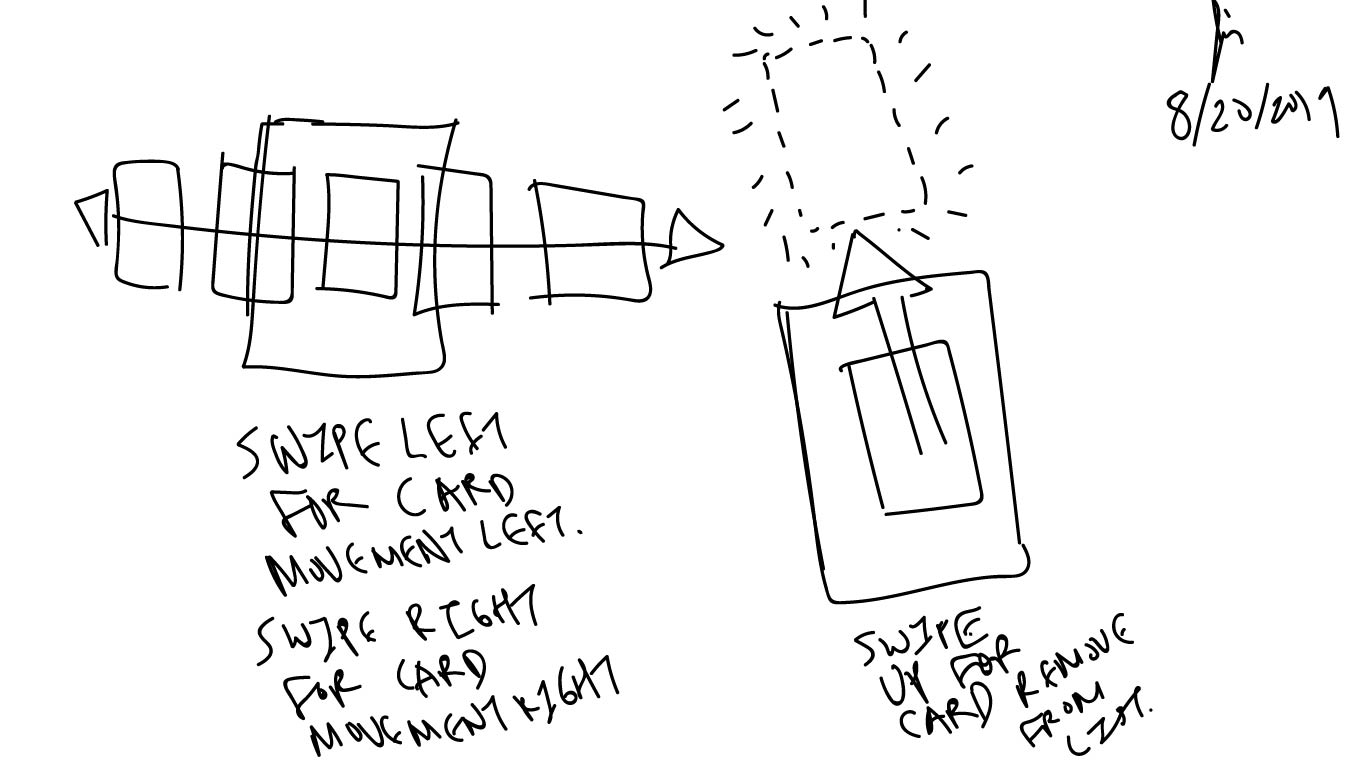 8/20/2019
SWIPE LEFT
FOR CARD
MOVEMENT LEFT.
SWIPE RIGHT
FOR CARD
MOVEMENT RIGHT
SWIPE
UP FOR
CARD REMOVE
FROM
LIST.